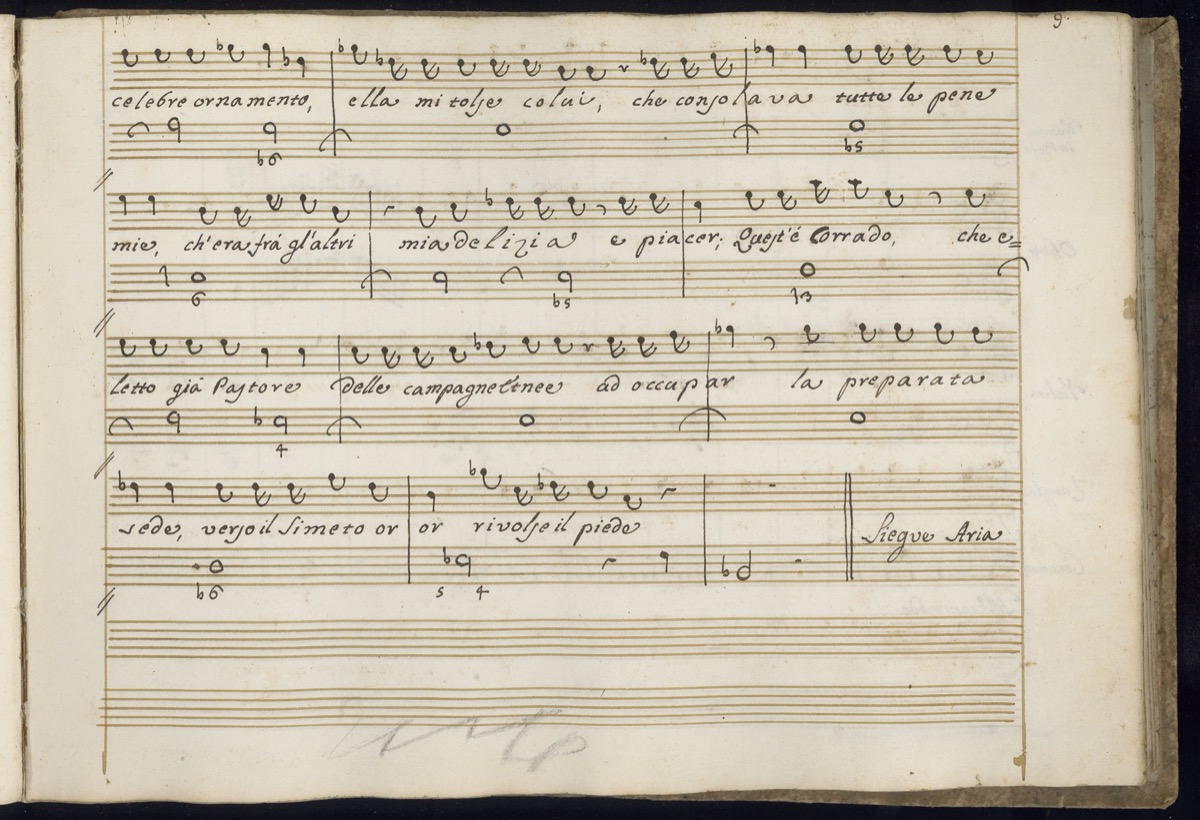 9
celebre ornamento, ella mi tolse colui, che consolava tutte le pene
b6 b5
mie, ch'era frá gl'altri mia delizia e piacer; Quest'é Corrado, che e=
6 b5 13
letto giá Pastore Delle campagne Etnee ad occupar la preparata
4
sede, verso il Simeto or or rivolse il piede Siegue Aria
b6 5 4